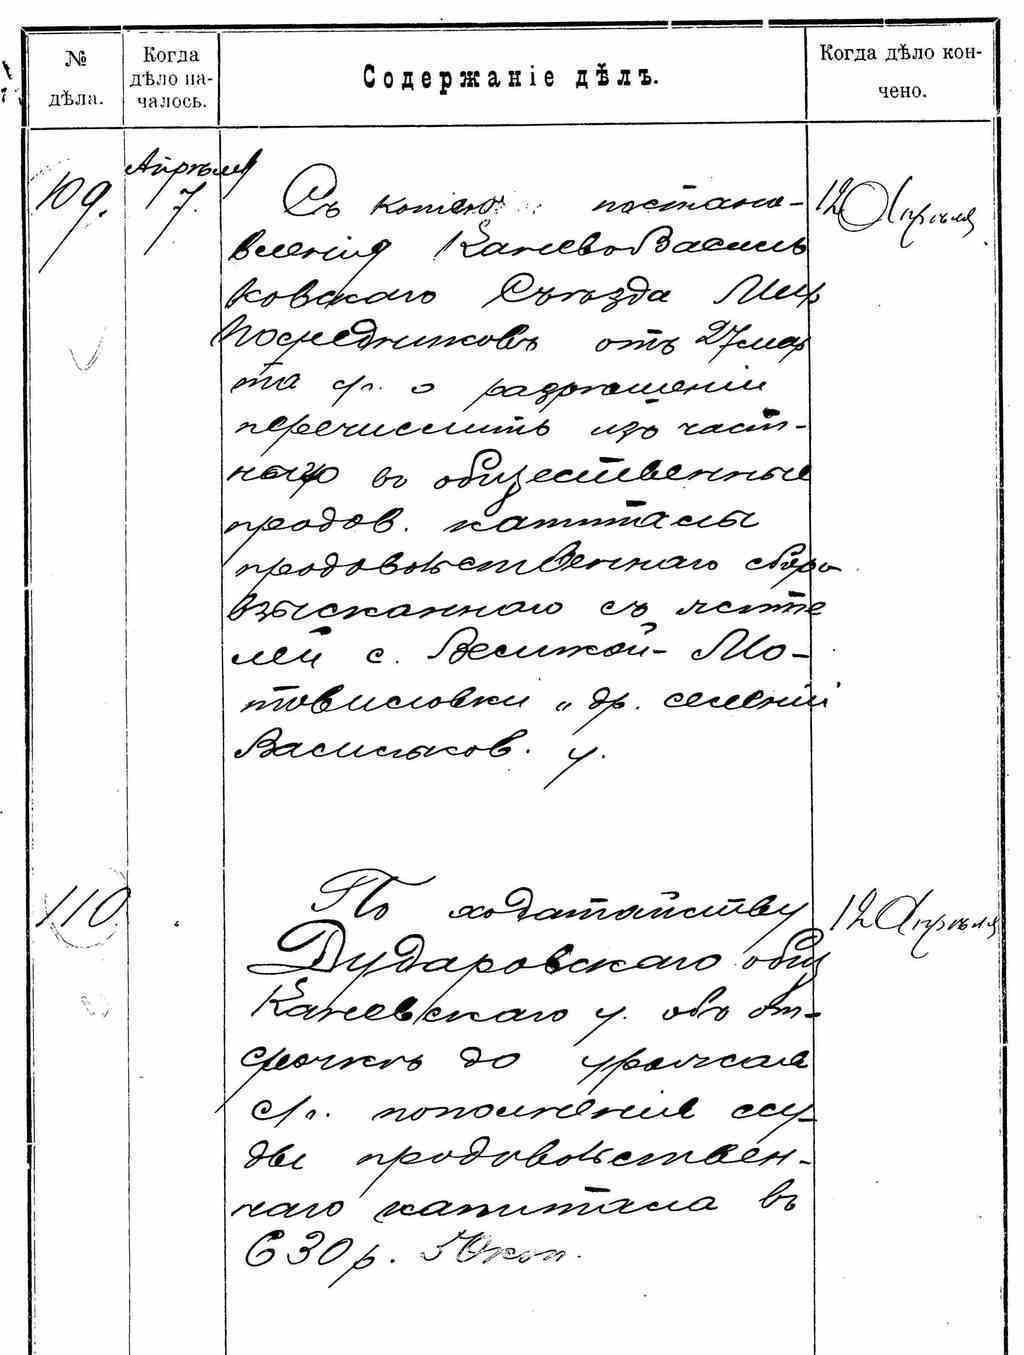 № дѣла.
Когда дѣло на-
чалось.
Содержаніе дѣлъ.
Когда дѣло кон-
чено.
109.
Апрѣля
7.
Съ копією постано-
вленія Каневовасиль
ковскаго Съѣзда Мир
Посредниковъ отъ 27 мар
та с/г. о разрѣшеніи
перечислить изъ част-
наго въ общественные
продов. капиталы
продовольственнаго сбора
взысканнаго съ жите
лей с. Великой-Мо-
товиловки и др. селеній
Васильков. у.
12 Апрѣля
110
По ходатайству
Дударовскаго общ
Каневскаго у. объ от-
срочкѣ до урожая
с/г. пополненія ссу-
ды продовольствен-
наго капитала въ
630 р. 50 коп.
12 Апрѣля